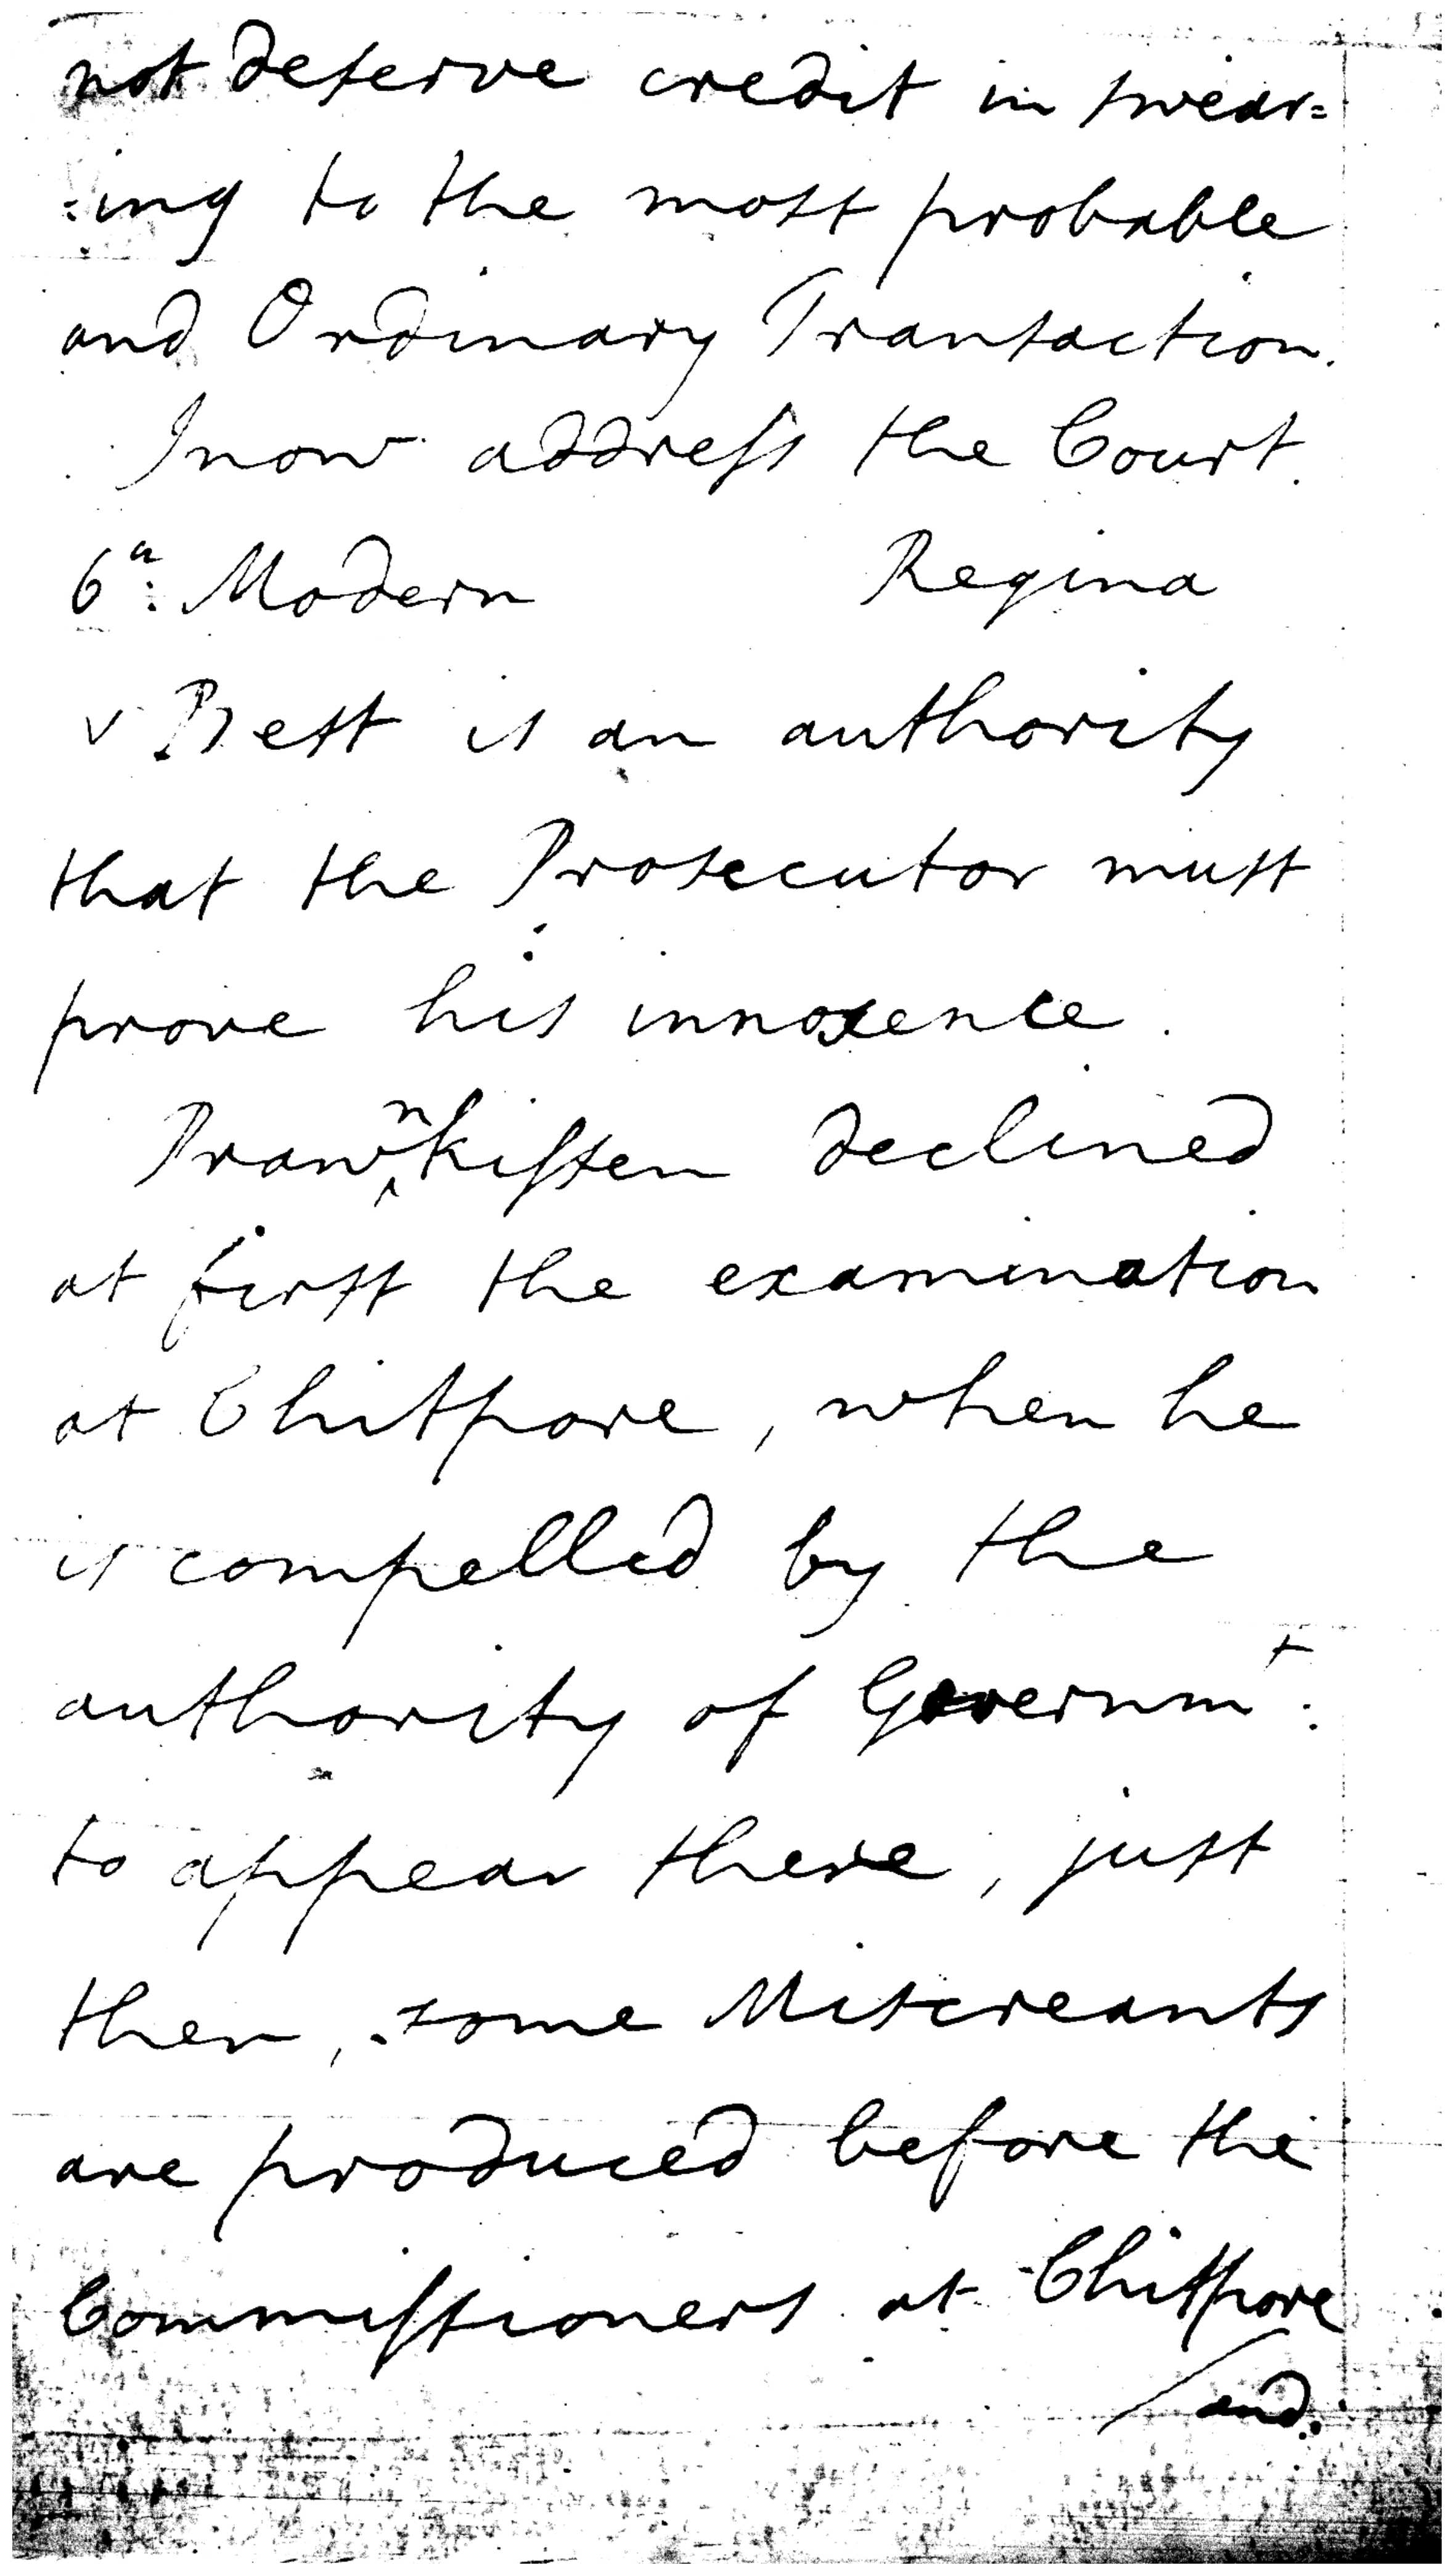 not deserve credit in swear=
=ing to the most probable
and Ordinary Transaction.
I now address the Court.
6th: Modern Regina
v Best is an authority
that the Prosecutor must
prove his innocence.
Prawnkissen declined
at first the examination
at Chitpore, when he
is compelled by the
authority of Governmt:
to appear there, just
then, some Miscreants
are produced before the
Commissioners at Chitpore
/and.